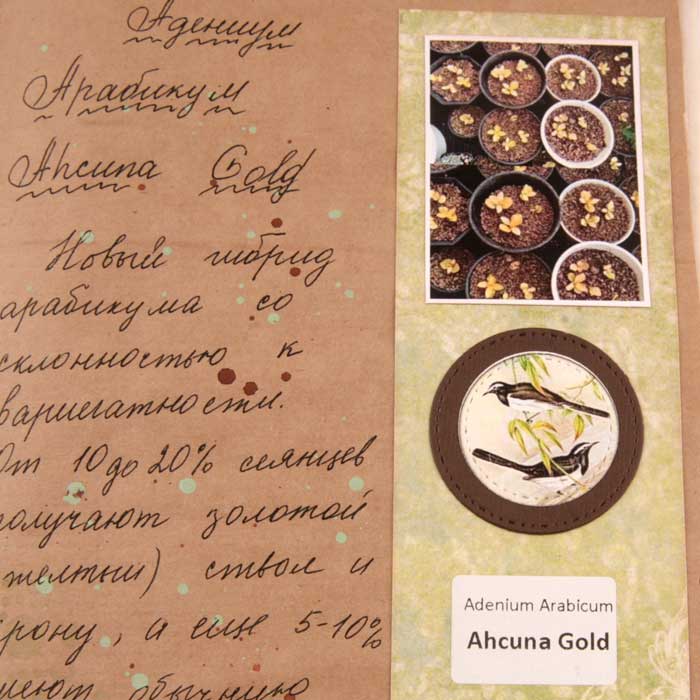 Адениум
Арабикум
Ahcuna Gold
Новый гибрид
арабикума со
склонностью к
вариегатности.
От 10 до 20% сеянцев
получают золотой
(желтый) ствол и
крону, а еще 5-10%
имеют обычную
Adenium Arabicum
Ahcuna Gold